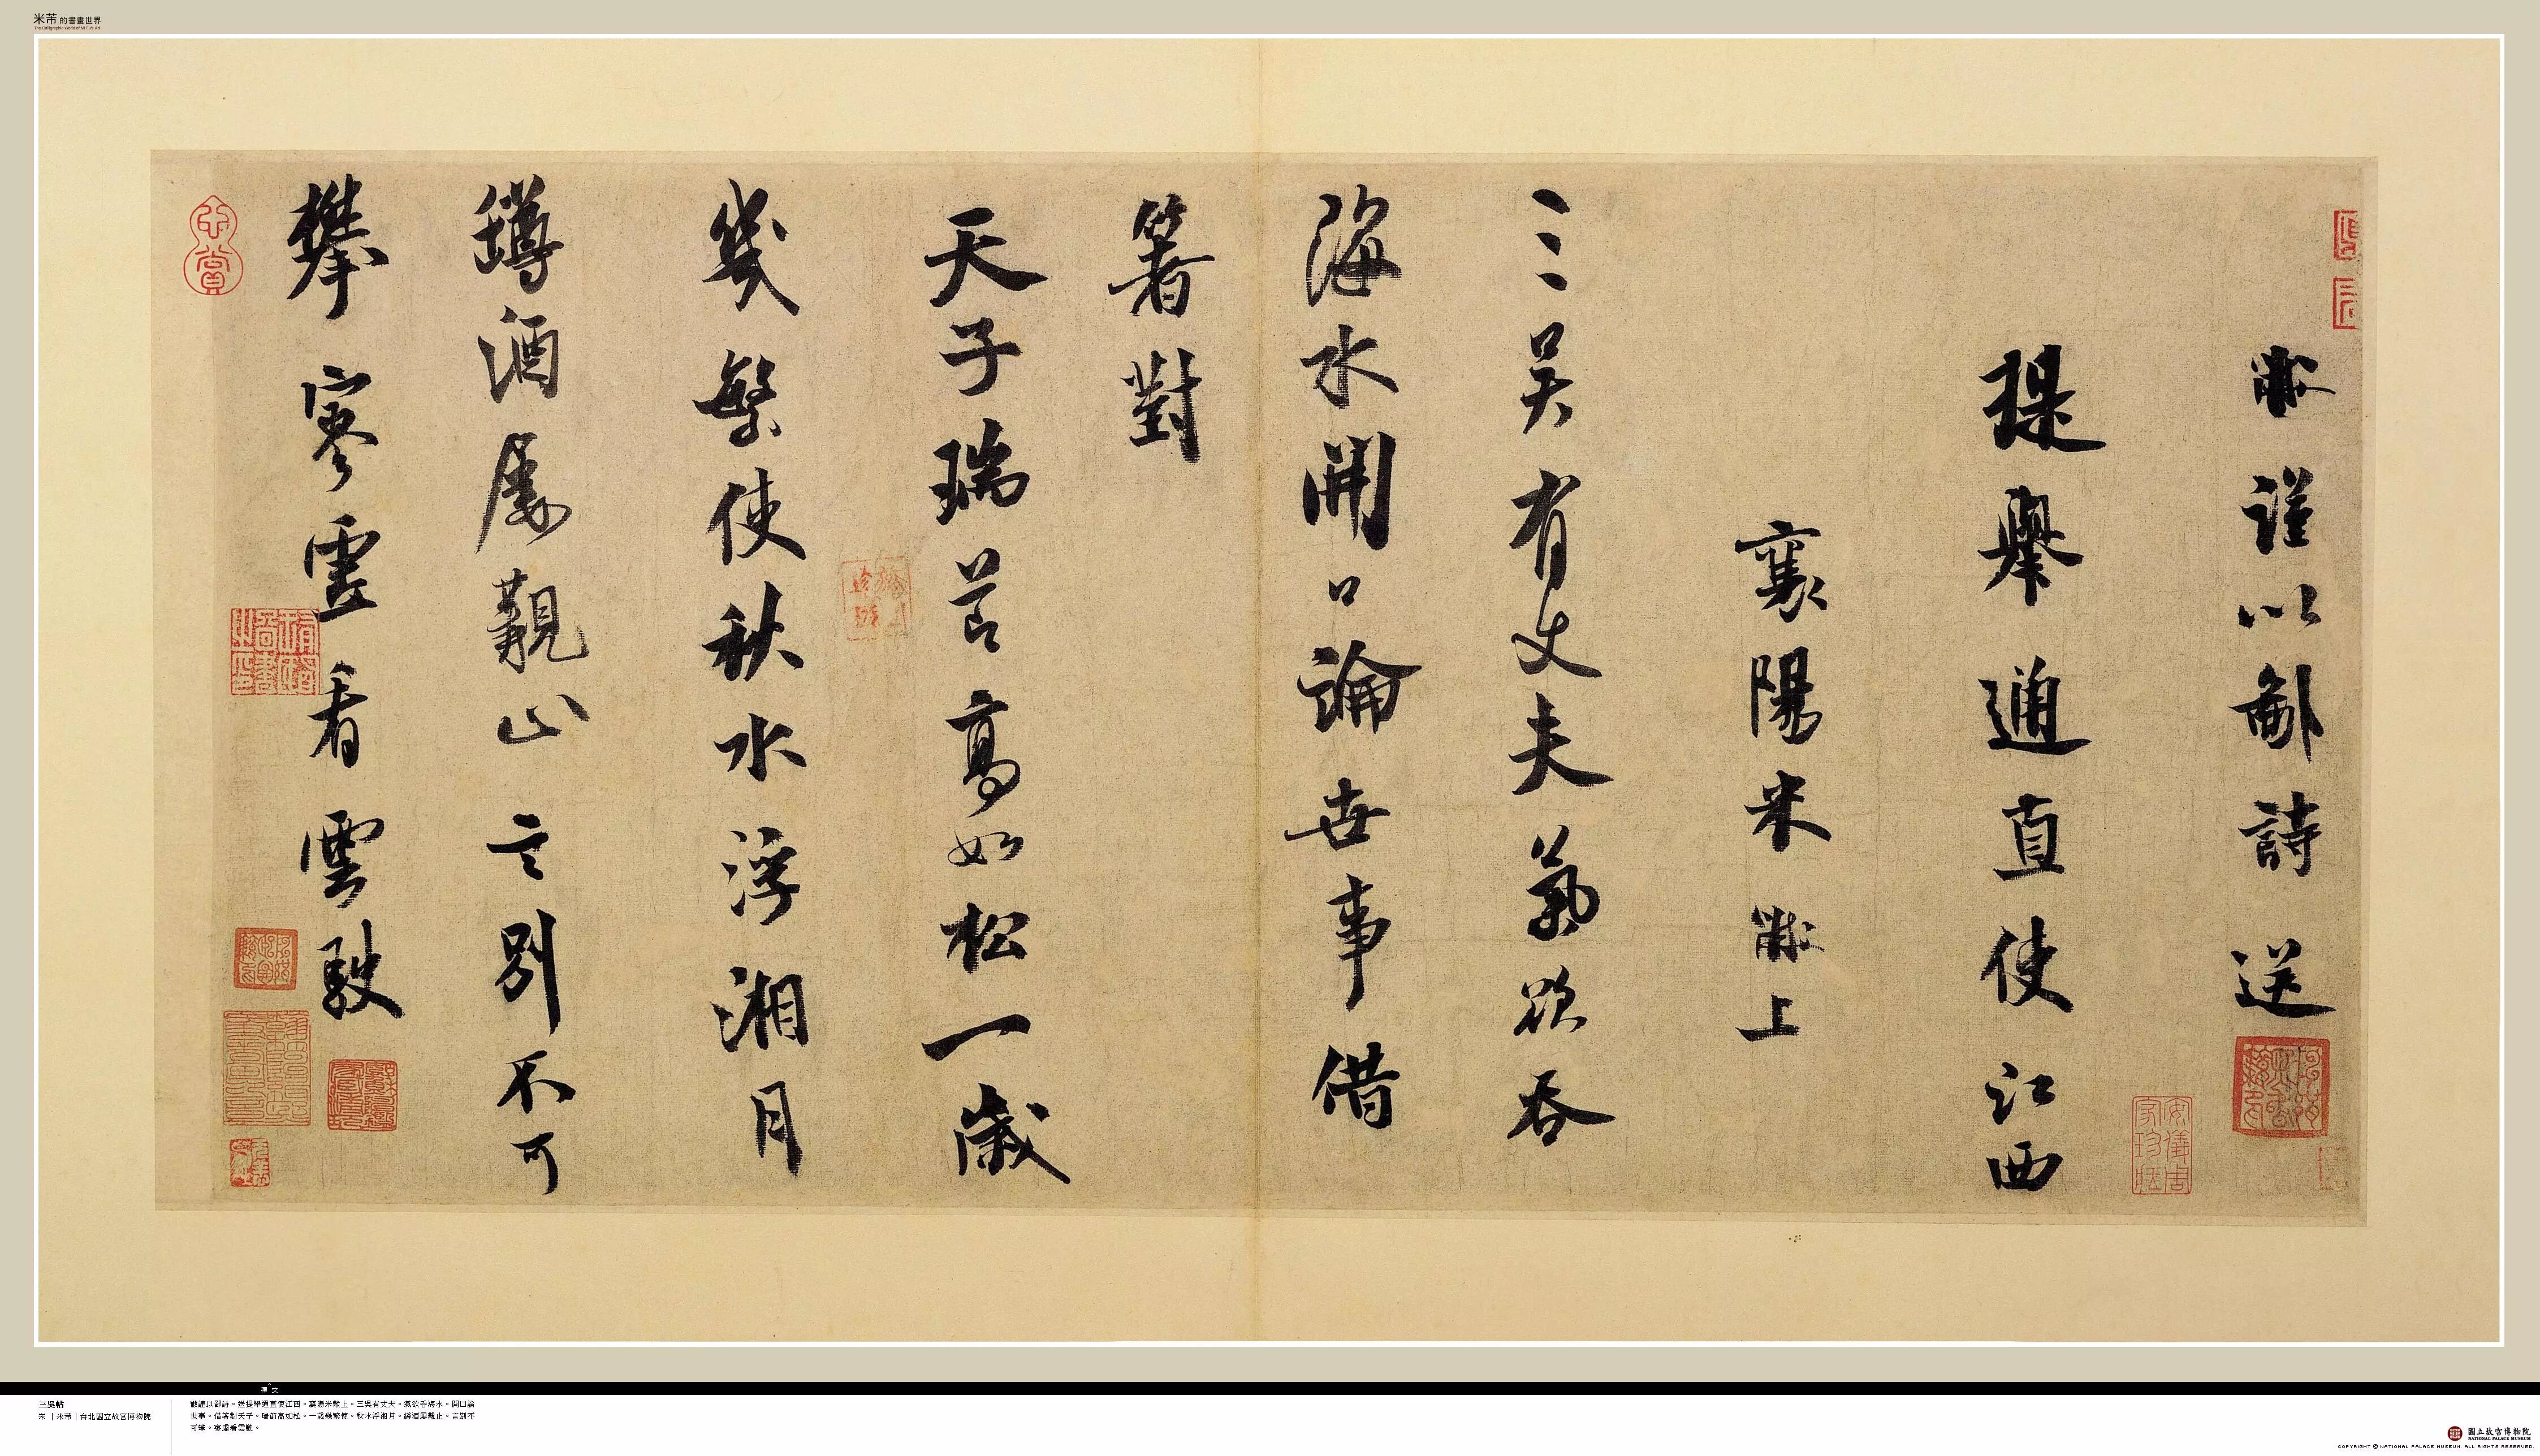 米芾的書畫世界
黻謹以鄙詩送
提舉通直使江西
襄陽米黻上
三吳有丈夫氣欲吞
海水開口論世事借
箸對
天子瑞節高如松一歲
幾繁使秋水浮湘月
罇酒屢覯止言別不可
攀寥虛看雲駛
釋文
三吳帖
宋 | 米芾 | 台北國立故宮博物院
黻謹以鄙詩。送提舉通直使江西。襄陽米黻上。三吳有丈夫。氣欲吞海水。開口論
世事。借箸對天子。瑞節高如松。一歲幾繁使。秋水浮湘月。罇酒屢覯止。言別不
可攀。寥虛看雲駛。
國立故宮博物院
NATIONAL PALACE MUSEUM
COPYRIGHT © NATIONAL PALACE MUSEUM. ALL RIGHTS RESERVED.